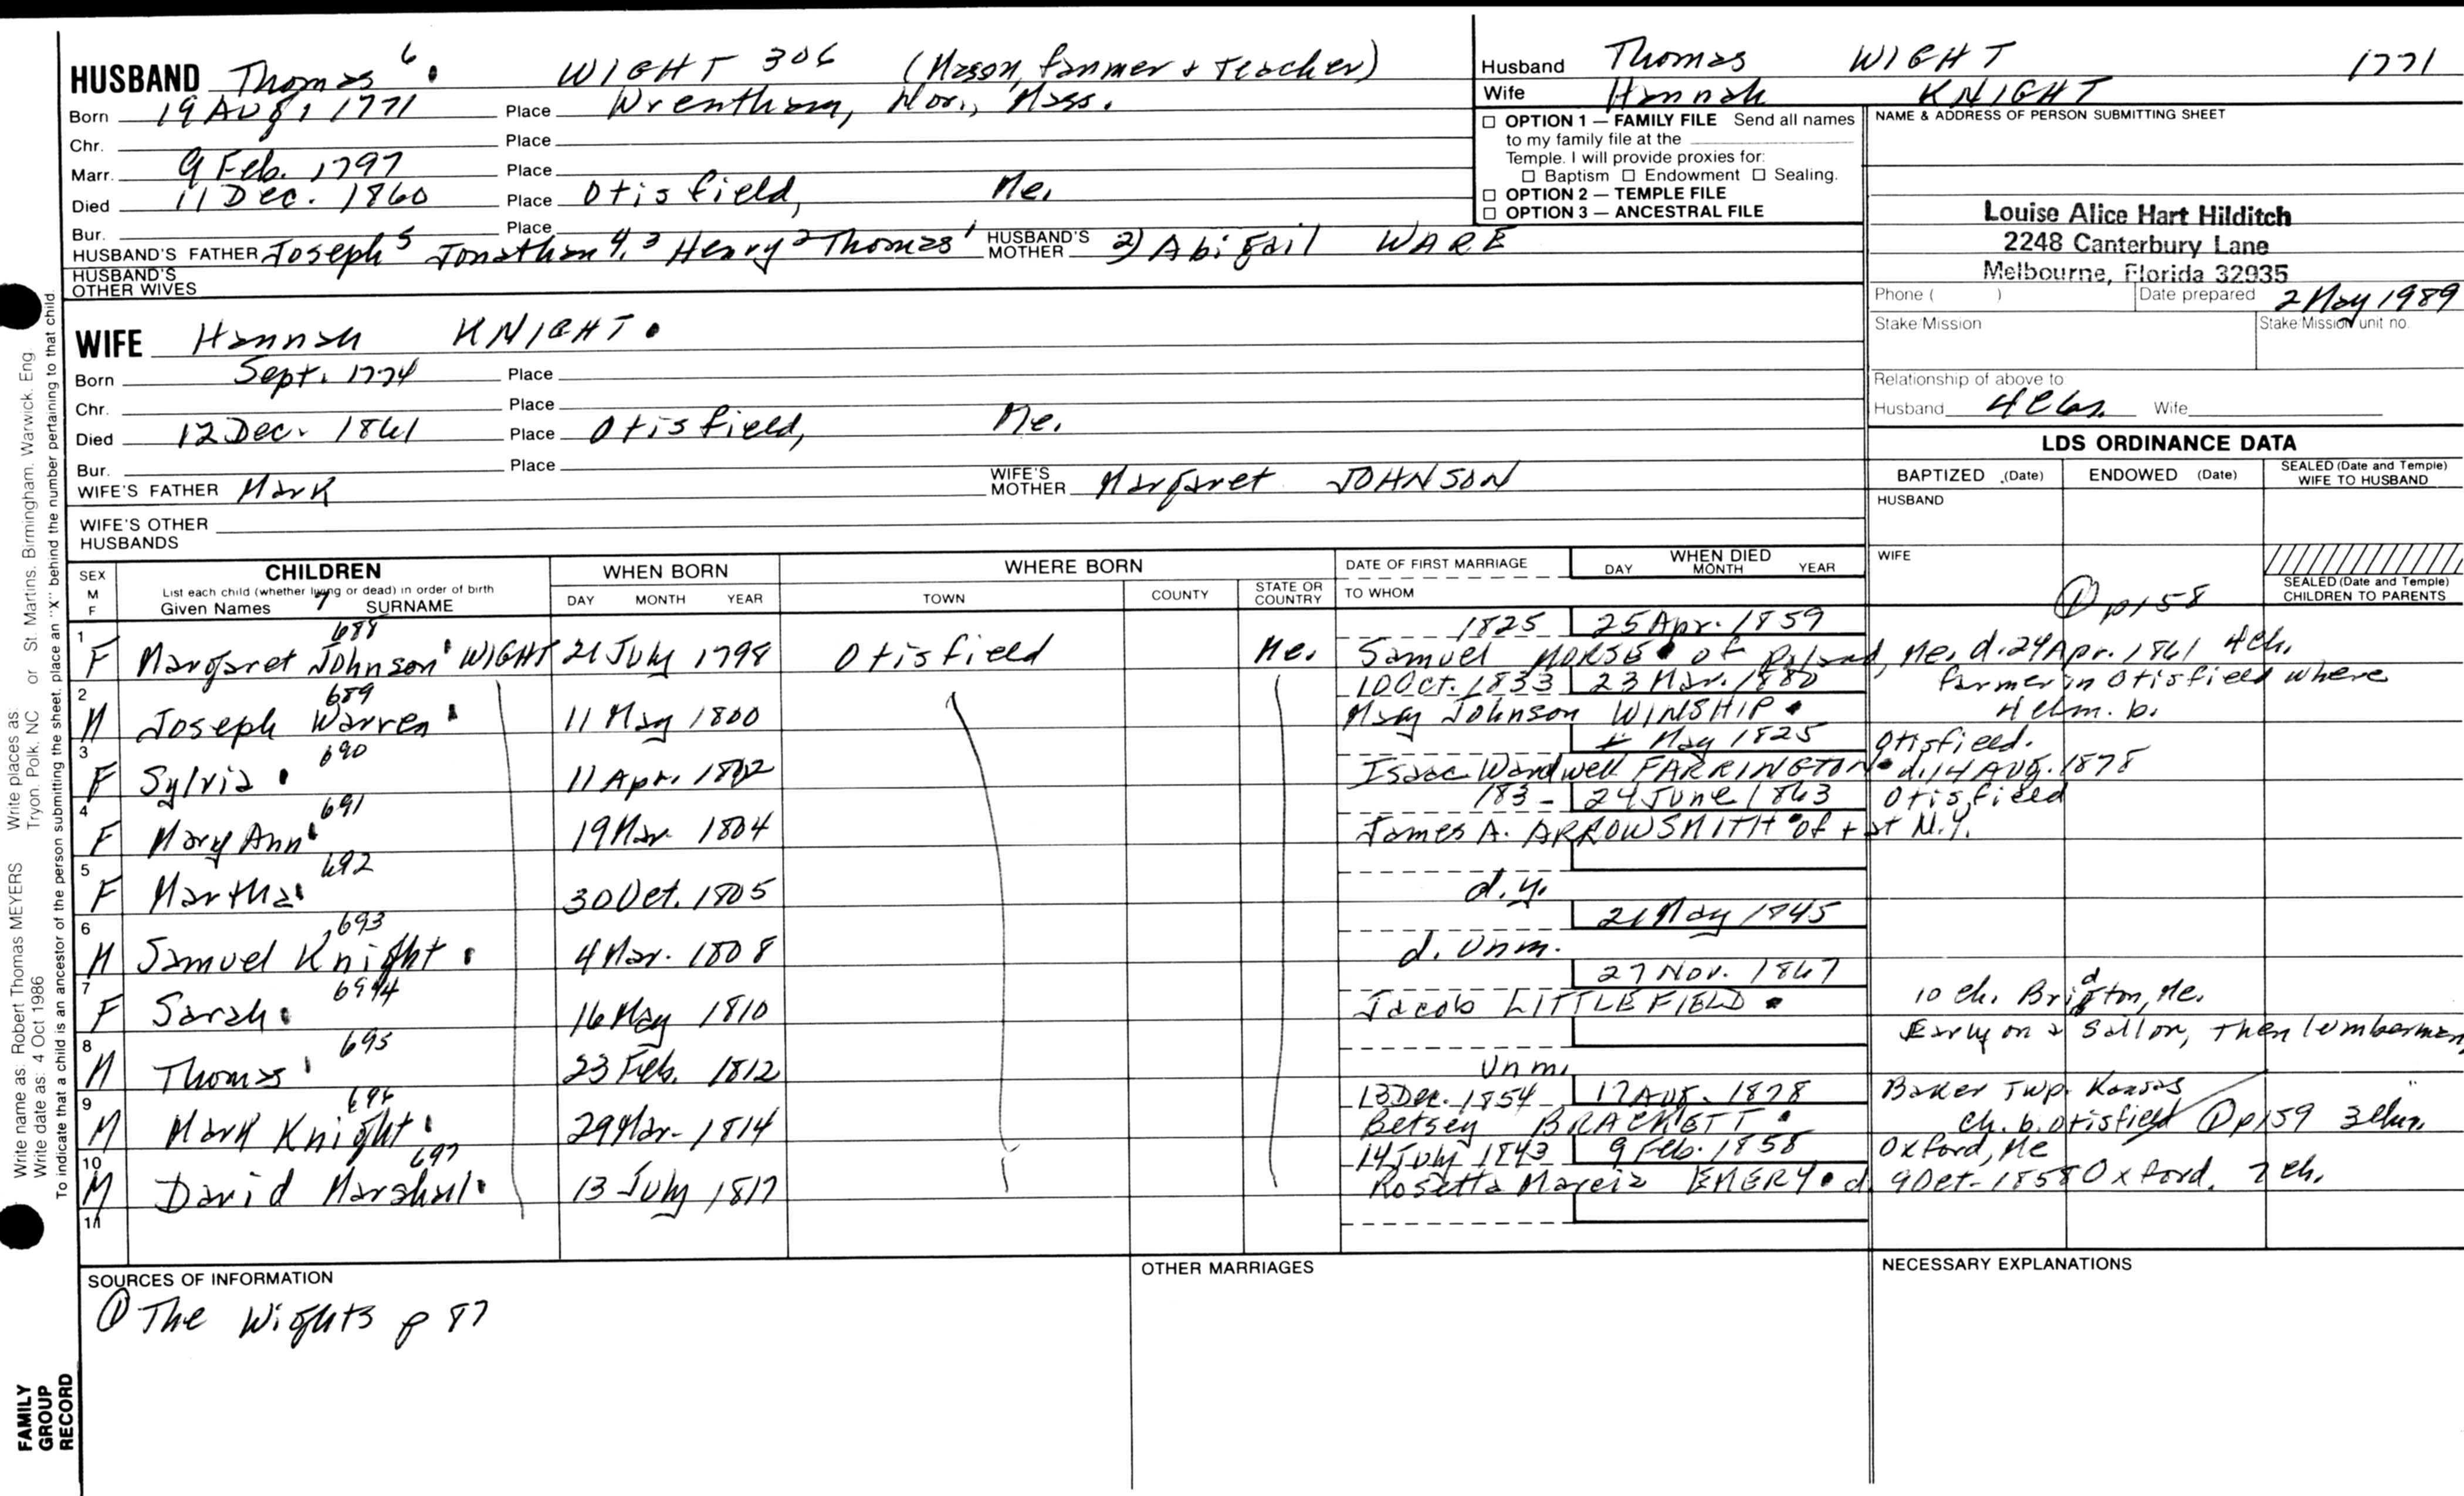 HUSBAND Thomas 6 WIGHT 306 (Mason, farmer + Teacher)
Born 19 Aug, 1771 Place Wrentham, Nor., Mass.
Chr. Place
Marr. 9 Feb. 1797 Place
Died 11 Dec. 1860 Place Otisfield, Me.
Bur. Place
HUSBAND'S FATHER Joseph 5 Jonathan 4, 3 Henry 2 Thomas 1 HUSBAND'S MOTHER 2) Abigail WARE
HUSBAND'S OTHER WIVES
Husband Thomas WIGHT 1771
Wife Hannah KNIGHT
☐ OPTION 1 — FAMILY FILE Send all names
to my family file at the
Temple. I will provide proxies for:
☐ Baptism ☐ Endowment ☐ Sealing.
☐ OPTION 2 — TEMPLE FILE
☐ OPTION 3 — ANCESTRAL FILE
NAME & ADDRESS OF PERSON SUBMITTING SHEET
Louise Alice Hart Hilditch
2248 Canterbury Lane
Melbourne, Florida 32935
Phone ( ) Date prepared 2 May 1989
Stake/Mission Stake/Mission unit no.
Relationship of above to
Husband Wife
WIFE Hannah KNIGHT.
Born Sept. 1774 Place
Chr. Place
Died 12 Dec. 1861 Place Otisfield, Me.
Bur. Place
WIFE'S FATHER Mark WIFE'S MOTHER Margaret JOHNSON
WIFE'S OTHER HUSBANDS
LDS ORDINANCE DATA
BAPTIZED (Date) ENDOWED (Date) SEALED (Date and Temple) WIFE TO HUSBAND
HUSBAND
WIFE
SEALED (Date and Temple) CHILDREN TO PARENTS
① p158
SEX M F
CHILDREN
List each child (whether living or dead) in order of birth
Given Names 7 SURNAME
WHEN BORN
DAY MONTH YEAR
WHERE BORN
TOWN COUNTY STATE OR COUNTRY
DATE OF FIRST MARRIAGE
TO WHOM
WHEN DIED
DAY MONTH YEAR
688 1825 25 Apr. 1859
1 F Margaret Johnson WIGHT 21 July 1798 Otisfield Me. Samuel MORSE of Poland, Me. d. 24 Apr. 1861 4 ch.
689 10 Oct. 1833 23 Mar. 1880 farmer in Otisfield where
2 M Joseph Warren 11 May 1800 Mary Johnson WINSHIP. 4 chn. b.
690 May 1825 Otisfield.
3 F Sylvia 11 Apr. 1802 Isaac Wardwell FARRINGTON d. 14 Aug. 1878
691 183- 24 June 1863 Otisfield
4 F Mary Ann 19 Mar 1804 James A. ARROWSMITH of + at N.Y.
692
5 F Martha 30 Oct. 1805 d.y.
693 21 May 1845
6 M Samuel Knight 4 Mar. 1808 d. unm.
694 27 Nov. 1867
7 F Sarah 16 May 1810 Jacob LITTLEFIELD. 10 ch. Bridgton, Me.
695 Early on a Sailor, then lumberman,
8 M Thomas 23 Feb. 1812 Unm.
696 13 Dec. 1854 17 Aug. 1878 Baker Twp. Kansas
9 M Mark Knight 29 Mar. 1814 Betsey BRACKETT. ch. b. Otisfield ① p159 3 chn.
697 14 July 1843 9 Feb. 1858 Oxford, Me
10 M David Marshal 13 July 1817 Rosetta Marcia EMERY. d. 9 Oct. 1858 Oxford. 2 ch.
11
SOURCES OF INFORMATION
① The Wights p 87
OTHER MARRIAGES
NECESSARY EXPLANATIONS
Write name as: Robert Thomas MEYERS Write places as: St. Martins, Birmingham, Warwick, Eng.
Write date as: 4 Oct 1986 Tryon, Polk, NC or
To indicate that a child is an ancestor of the person submitting the sheet, place an "X" behind the number pertaining to that child.
FAMILY
GROUP
RECORD